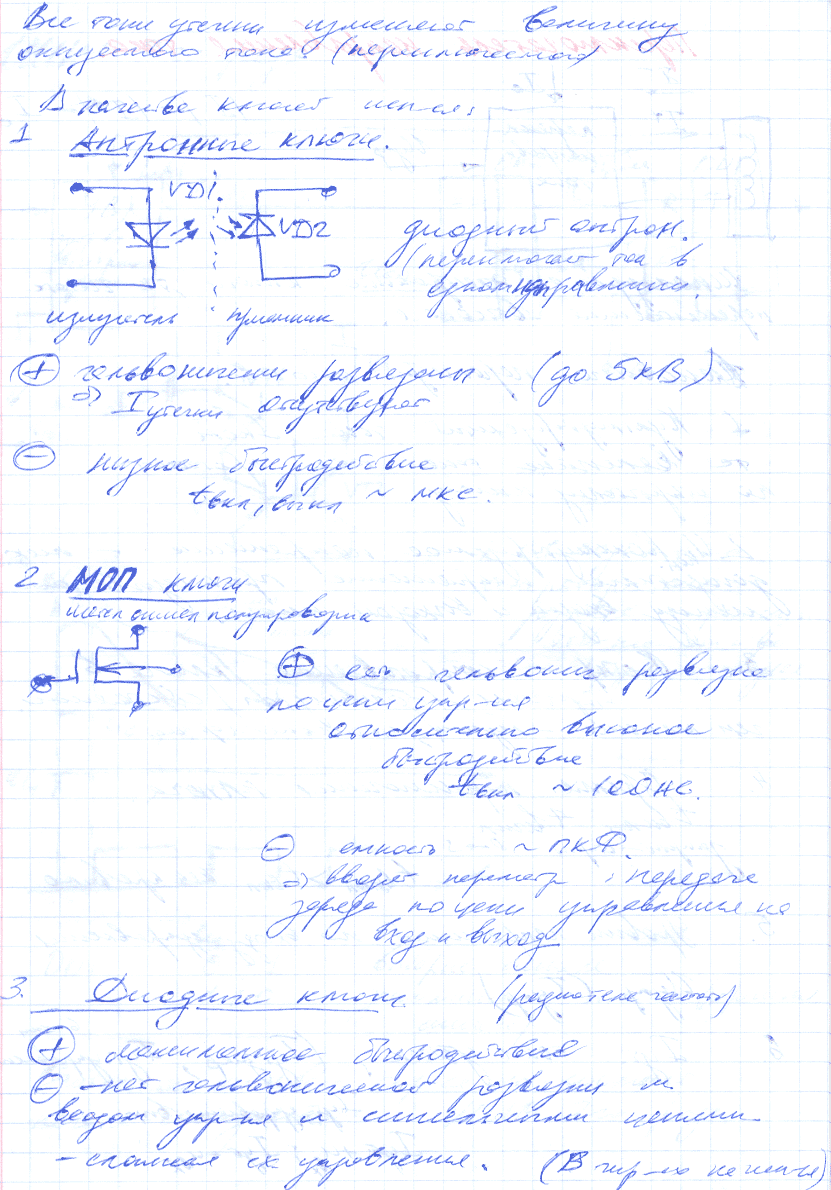 Все токи утечки изменяют величину
опорного тока. (переключаемого)
В качестве ключей испол:
1 Оптронные ключи.
VD1 VD2
диодный оптрон.
(переключает ток в
одном направлении.
излучатель приемник
+ гальванически развязаны (до 5кВ)
=> Iутечки отсутствуют
− низкое быстродействие
tвкл, выкл ~ мкс.
2 МОП ключи
метал окисел полупроводник
+ есть гальванич развязка
по цепи упр-ия
относительно высокое
быстродействие
tвкл ~ 100нс.
− емкость ~ пкФ.
=> вводят параметр : передача
заряда по цепи управления на
вход и выход
3. Диодные ключи (радиотехе частоты)
+ максимальное быстродействие
− -нет гальванической развязки м.
входом упр-ия и сигнальными цепями
-сложная сх управления.